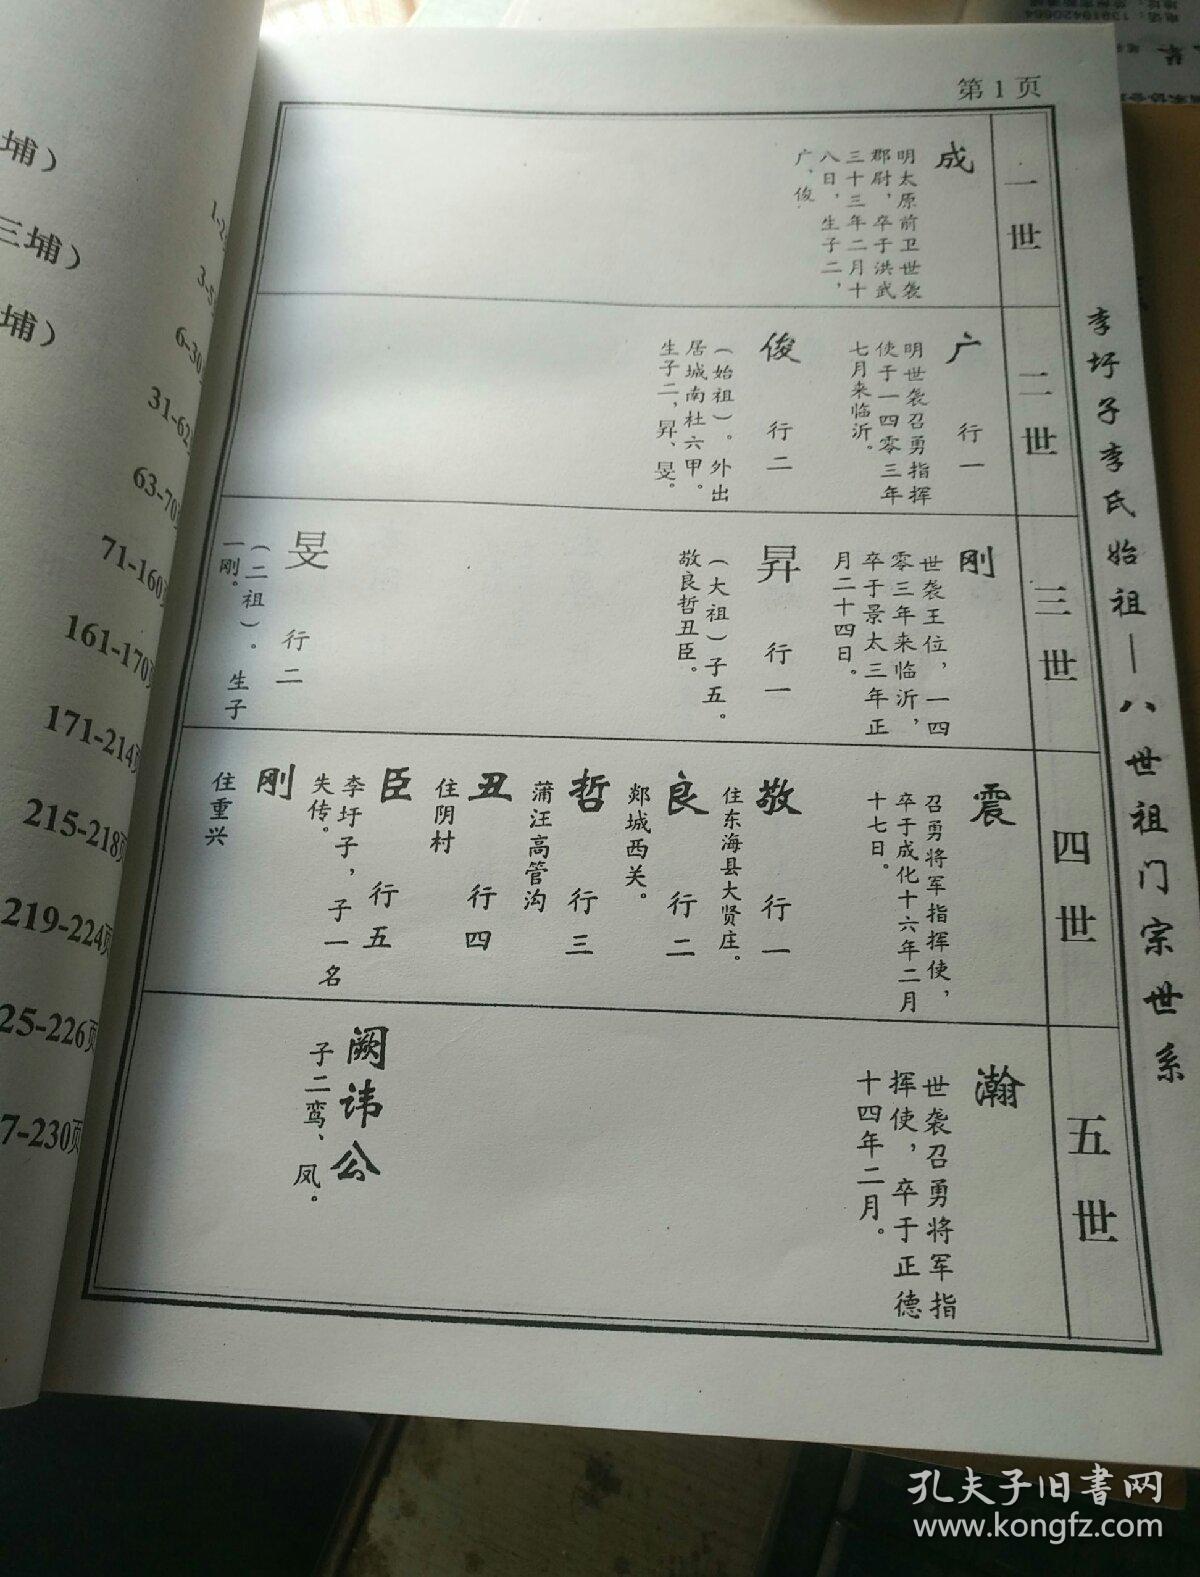 第1页
李圩子李氏始祖—八世祖门宗世系
一世
成
明太原前卫世袭
郡尉，卒于洪武
三十三年二月十
八日，生子二，
广、俊
二世
广 行一
明世袭召勇指挥
使于一四零三年
七月来临沂。
俊 行二
（始祖）。外出
居城南杜六甲。
生子二，昇、旻。
三世
刚
世袭王位，一四
零三年来临沂，
卒于景太三年正
月二十四日。
昇 行一
（大祖）子五。
敬良哲丑臣。
旻 行二
（二祖）。生子
一刚。
四世
震
召勇将军指挥使，
卒于成化十六年二月
十七日。
敬 行一
住东海县大贤庄。
良 行二
郯城西关。
哲 行三
蒲汪高管沟
丑 行四
住阴村
臣 行五
李圩子，子一名
失传。
刚
住重兴
五世
瀚
世袭召勇将军指
挥使，卒于正德
十四年二月。
阙讳公
子二鸾、凤。
埔）
三埔）
埔）
6-30
31-62
63-70
71-160
161-170页
171-214页
215-218页
219-224页
25-226页
7-230页
孔夫子旧书网
www.kongfz.com